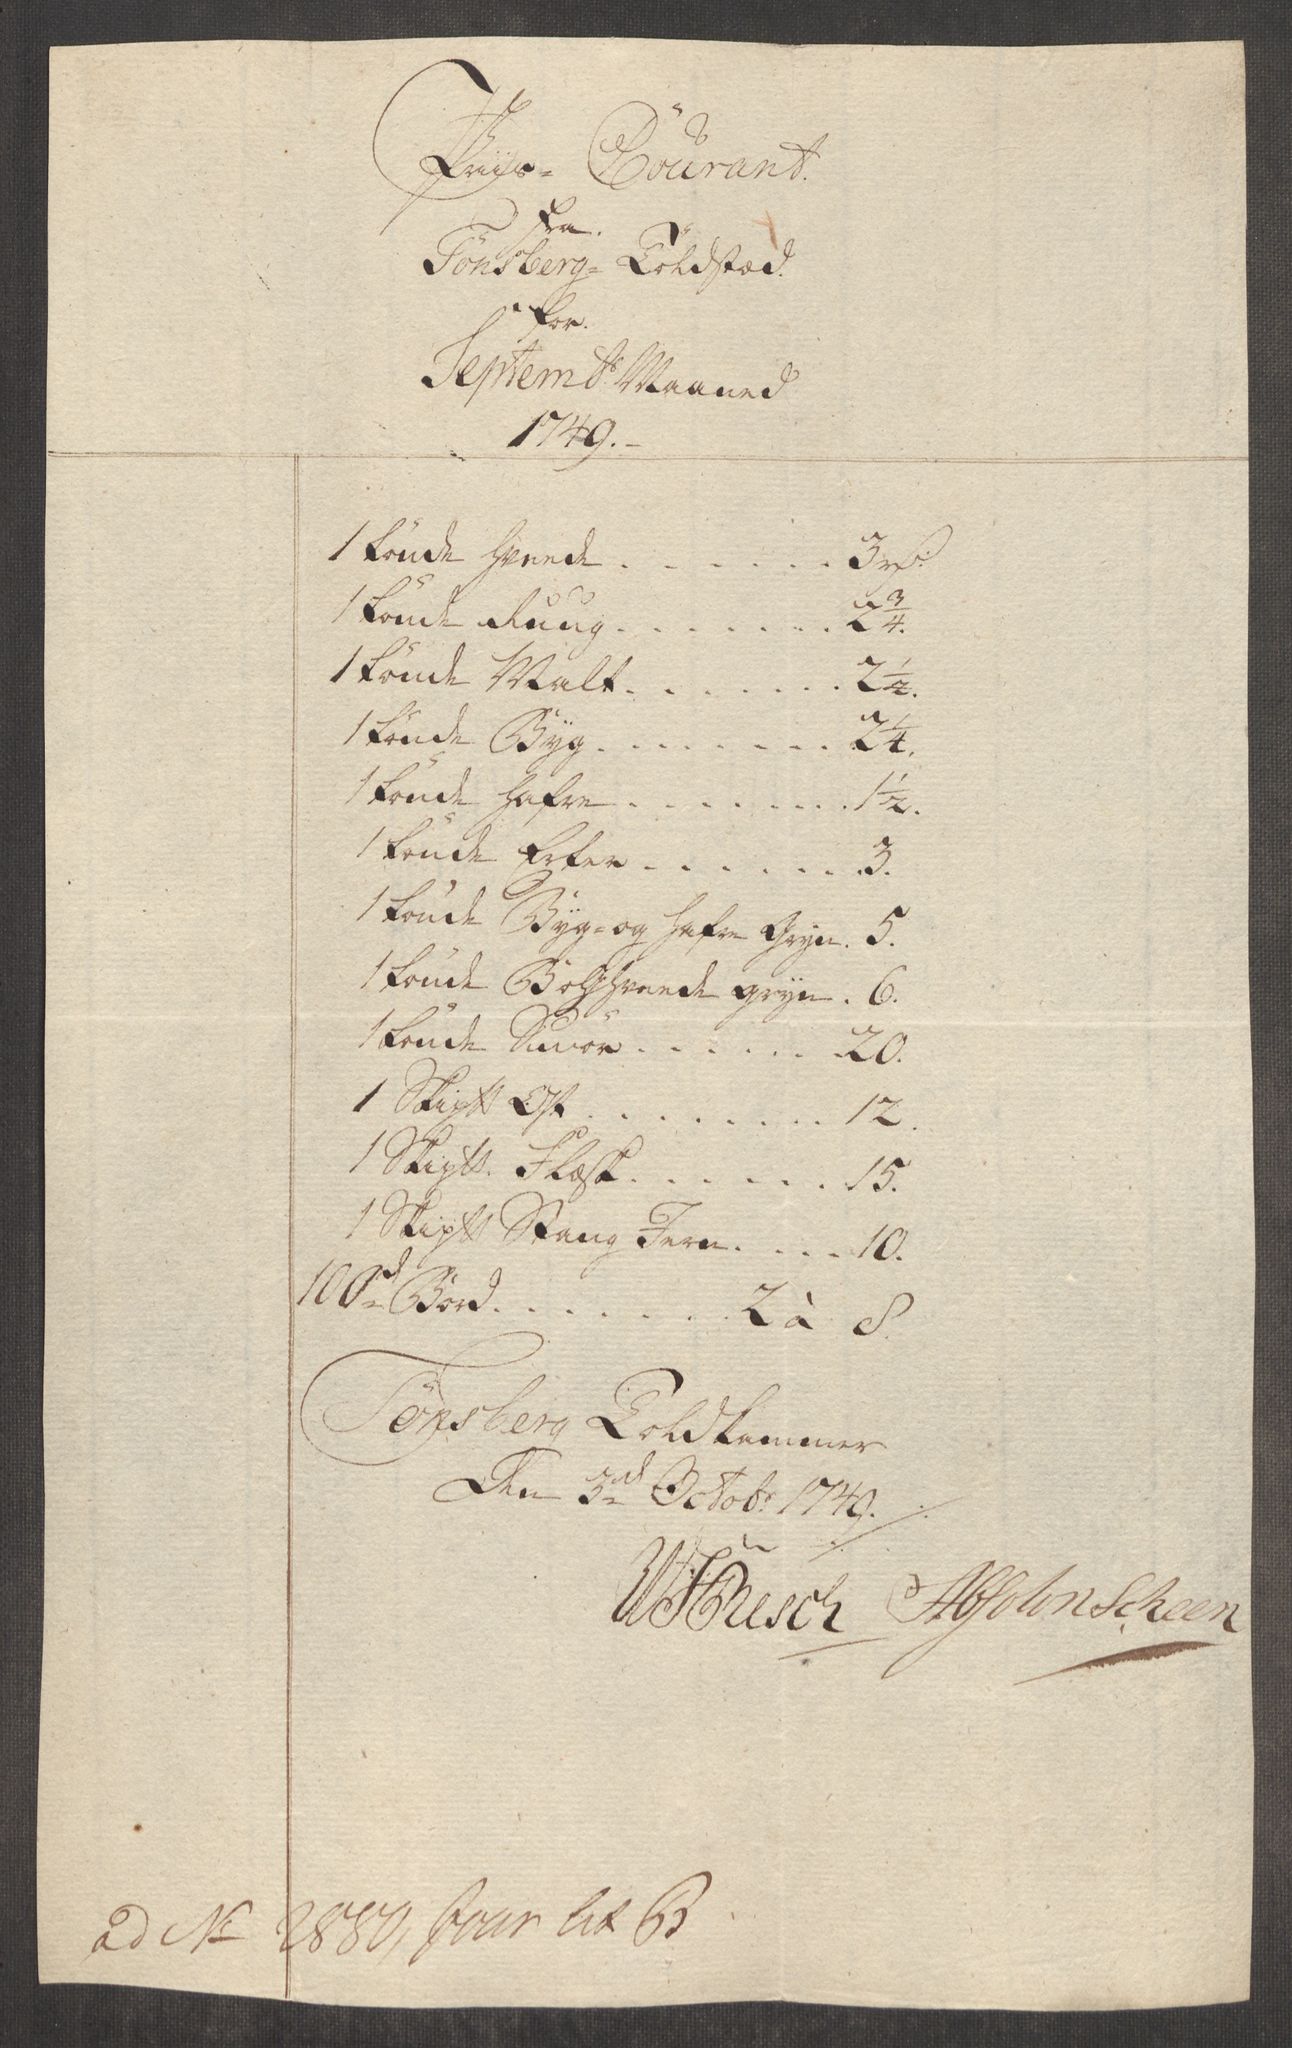 Priis- Courant.
fra.
Tönsberg- Toldstæd.
for.
Septembr Maaned
1749.-
1 tönde Hveede . . . . . . . 3 rd.
1 tönde Ruug . . . . . . . 2 3/4.
1 tönde Malt . . . . . . . 2 1/2.
1 tönde Byg . . . . . . . 2 1/4.
1 tönde Hafre . . . . . . . 1 1/2.
1 tönde Erter . . . . . . . 3.
1 tönde Byg- og Hafre Gryn . 5.
1 tönde Boghveede gryn . 6.
1 tönde Smör . . . . . . 20.
1 Skip℔ Ost . . . . . . . 12.
1 Skip℔. Flæsk . . . . . . 15.
1 Skip℔ Stang Jern . . . . 10.
100de Bord . . . . . . . 2 à 8.
Tönsberg Toldkammer
Den 3de Octobr 1749.
Resch Absolon Scheen
ad No 2880, Jour lit B